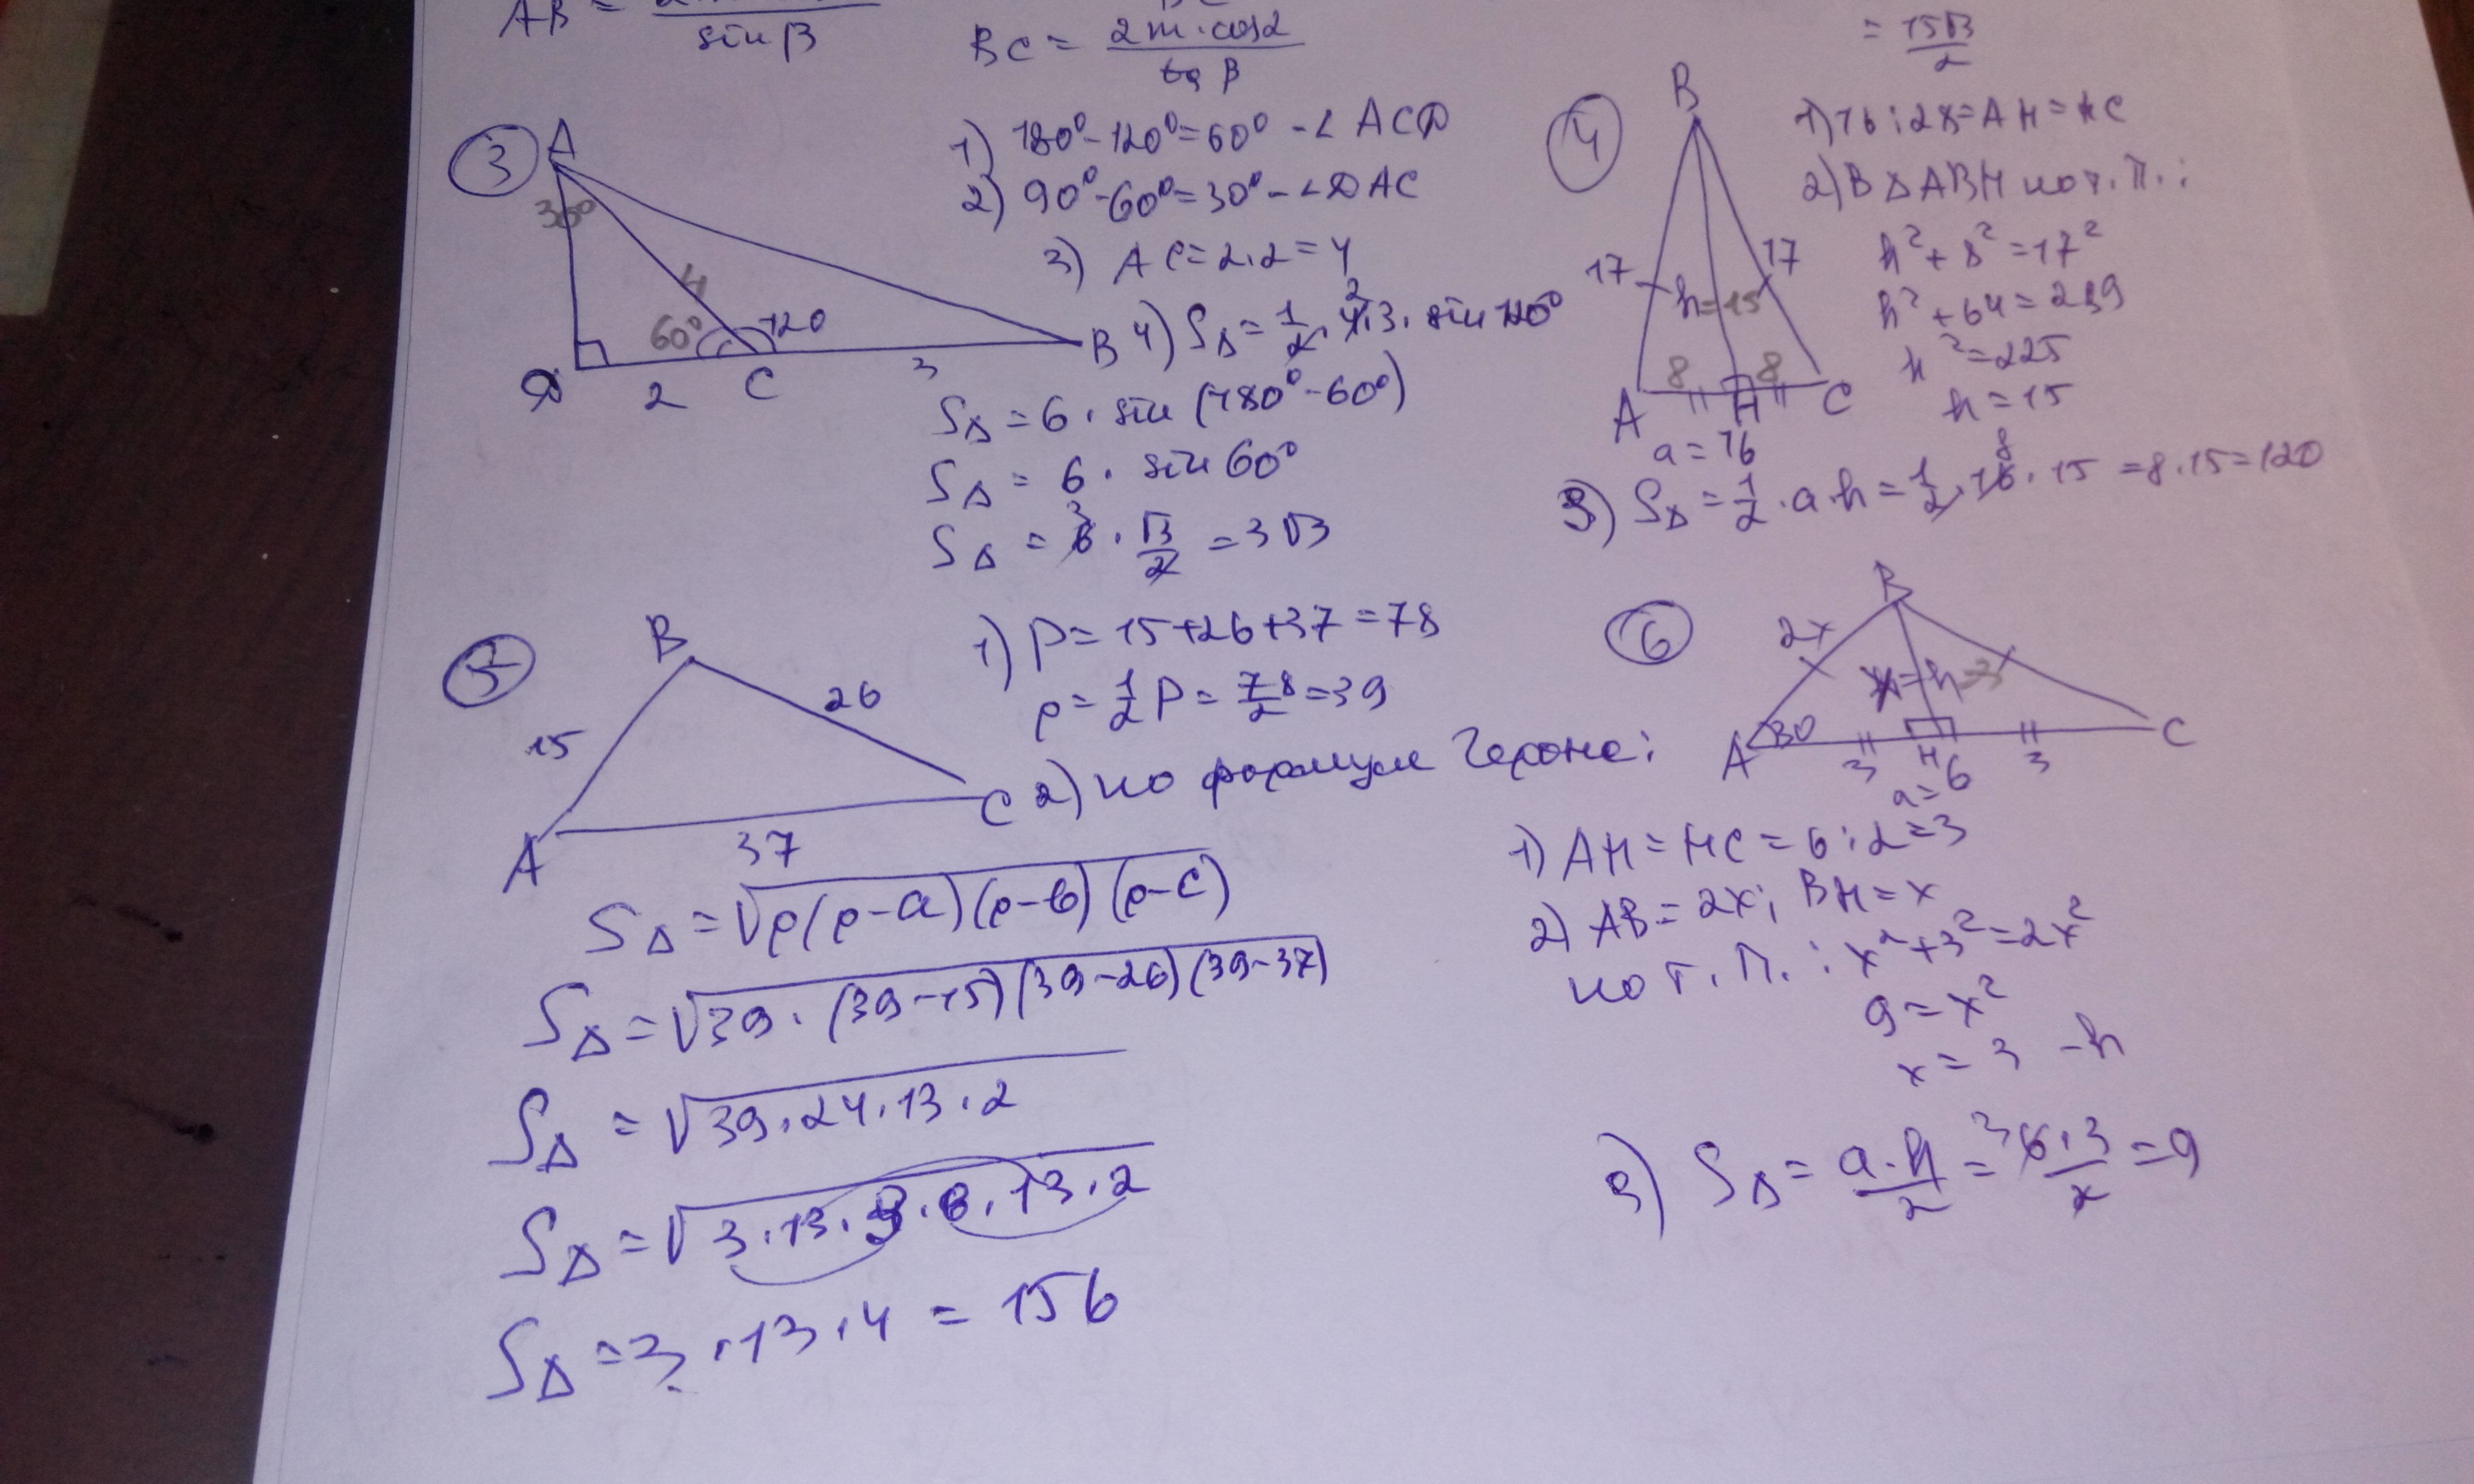 AB =
sin β
BC = 2m · cos α / tg β
= 15√3 / 2
③
A
30°
4
60°
120
D
2
C
3
B
1) 180° - 120° = 60° - ∠ACD
2) 90° - 60° = 30° - ∠DAC
3) AC = 2 · 2 = 4
4) S△ = 1/2 · 4 · 3 · sin 120°
2
S△ = 6 · sin (180° - 60°)
S△ = 6 · sin 60°
S△ = 6 · √3/2 = 3√3
3
④
B
17
17
h = 15
8
8
A
H
C
a = 16
1) 16 : 2 = 8 = AH = HC
2) В △ABH по т. П. :
h² + 8² = 17²
h² + 64 = 289
h² = 225
h = 15
3) S△ = 1/2 · a · h = 1/2 · 16 · 15 = 8 · 15 = 120
8
⑤
B
15
26
A
37
C
1) P = 15 + 26 + 37 = 78
p = 1/2 P = 78/2 = 39
2) по формуле Герона :
S△ = √p(p-a)(p-b)(p-c)
S△ = √39 · (39-15)(39-26)(39-37)
S△ = √39 · 24 · 13 · 2
S△ = √3 · 13 · 3 · 8 · 13 · 2
S△ = 3 · 13 · 4 = 156
⑥
B
2x
x = h = 3
A
30
3
H
3
C
a = 6
1) AH = HC = 6 : 2 = 3
2) AB = 2x; BH = x
по т. П. : x² + 3² = 2x²
9 = x²
x = 3 - h
3) S△ = a · h / 2 = 6 · 3 / 2 = 9
3